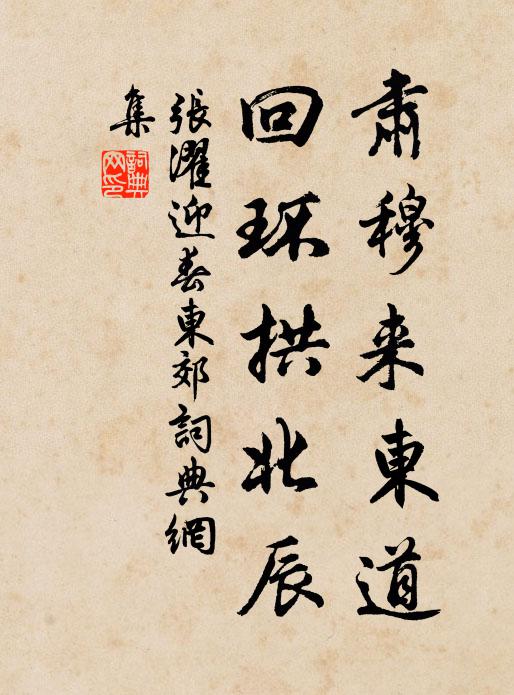 肅穆来東道
回环拱北辰
張濯迎春東郊詞典網
集
詞典网印